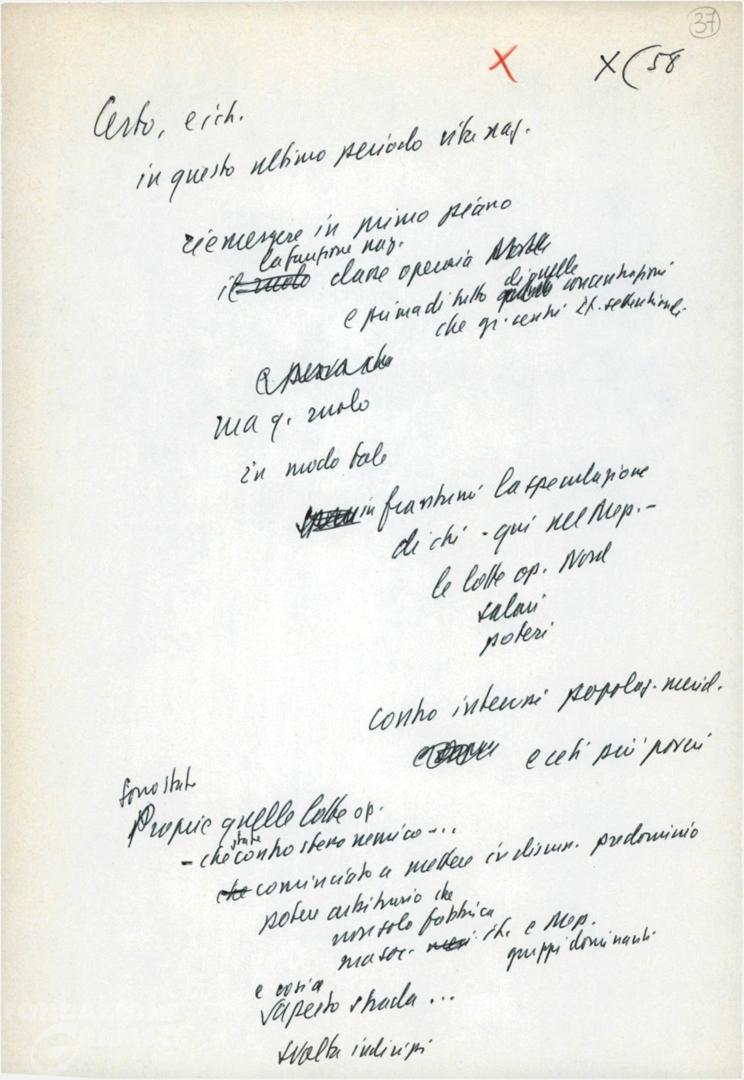 37
X X (58
Certo, e ich.
in questo ultimo periodo vita naz.
riemergere in primo piano
la funzione naz.
il ruolo classe operaia
e prima di tutto di quelle concentrazioni
che q. centri settentrionali
ma q. ruolo
in modo tale
in frantumi la speculazione
di chi - qui nel Mep. -
le lotte op. Nord
salari
poteri
contro interessi popolaz. merid.
e ceti più poveri
Sono state
Proprie quelle lotte op.
state
- che contro stero nemico - ..
che cominciato a mettere in discuss. predominio
potere arbitrario che
non solo fabbrica
ma soc. it. e Mep.
gruppi dominanti
e così a
aperto strada ...
svolta indirizzi